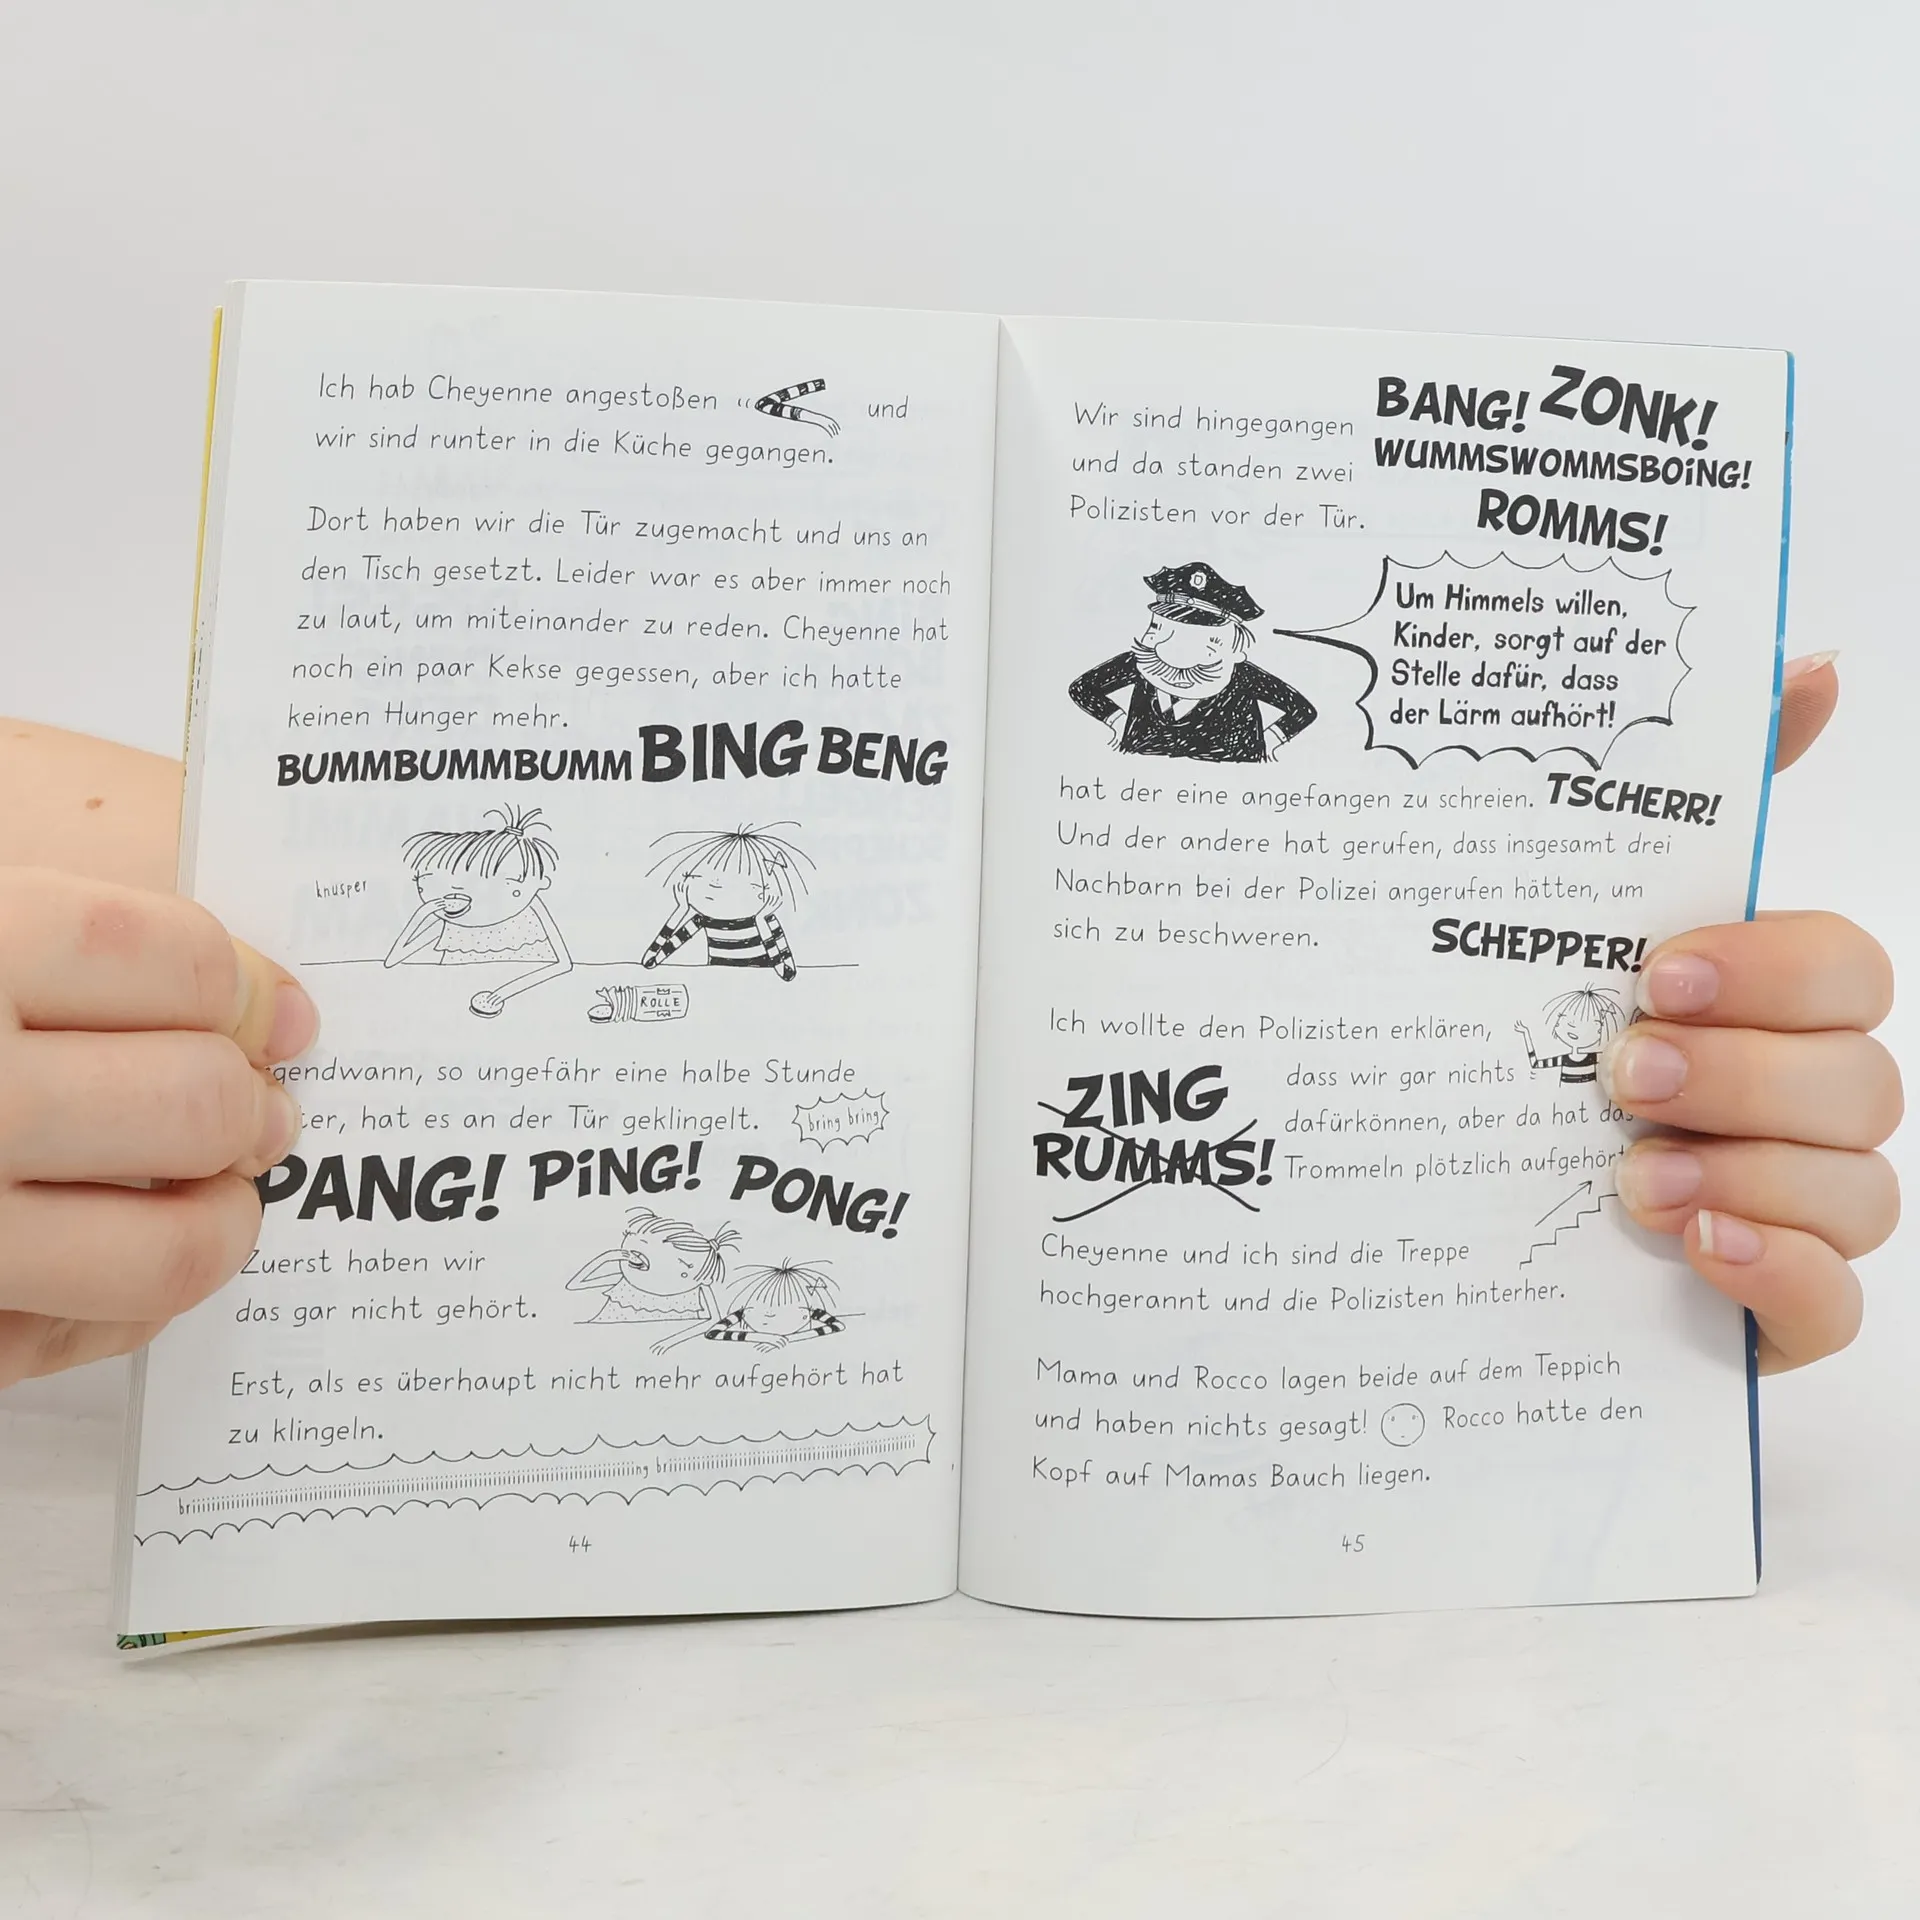 Ich hab Cheyenne angestoßen und
wir sind runter in die Küche gegangen.
Dort haben wir die Tür zugemacht und uns an
den Tisch gesetzt. Leider war es aber immer noch
zu laut, um miteinander zu reden. Cheyenne hat
noch ein paar Kekse gegessen, aber ich hatte
keinen Hunger mehr.
BUMMBUMMBUMM BING BENG
knusper
ROLLE
so ungefähr eine halbe Stunde
hat es an der Tür geklingelt.
bring bring
PANG! PiNG! PONG!
Zuerst haben wir
das gar nicht gehört.
Erst, als es überhaupt nicht mehr aufgehört hat
zu klingeln.
44
Wir sind hingegangen
und da standen zwei
Polizisten vor der Tür.
BANG! ZONK!
WUMMSWOMMSBOiNG!
ROMMS!
Um Himmels willen,
Kinder, sorgt auf der
Stelle dafür, dass
der Lärm aufhört!
hat der eine angefangen zu schreien. TSCHERR!
Und der andere hat gerufen, dass insgesamt drei
Nachbarn bei der Polizei angerufen hätten, um
sich zu beschweren. SCHEPPER!
Ich wollte den Polizisten erklären,
dass wir gar nichts
dafürkönnen, aber da hat das
Trommeln plötzlich
ZING
RUMMS!
Cheyenne und ich sind die Treppe
hochgerannt und die Polizisten hinterher.
Mama und Rocco lagen beide auf dem Teppich
und haben nichts gesagt! Rocco hatte den
Kopf auf Mamas Bauch liegen.
45